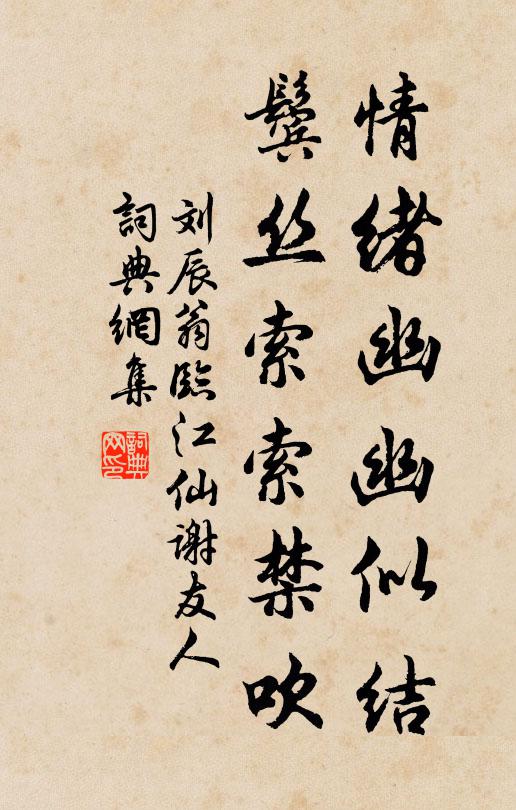 情绪幽幽似结
鬓丝索索禁吹
刘辰翁临江仙谢友人
詞典網集
詞典网印